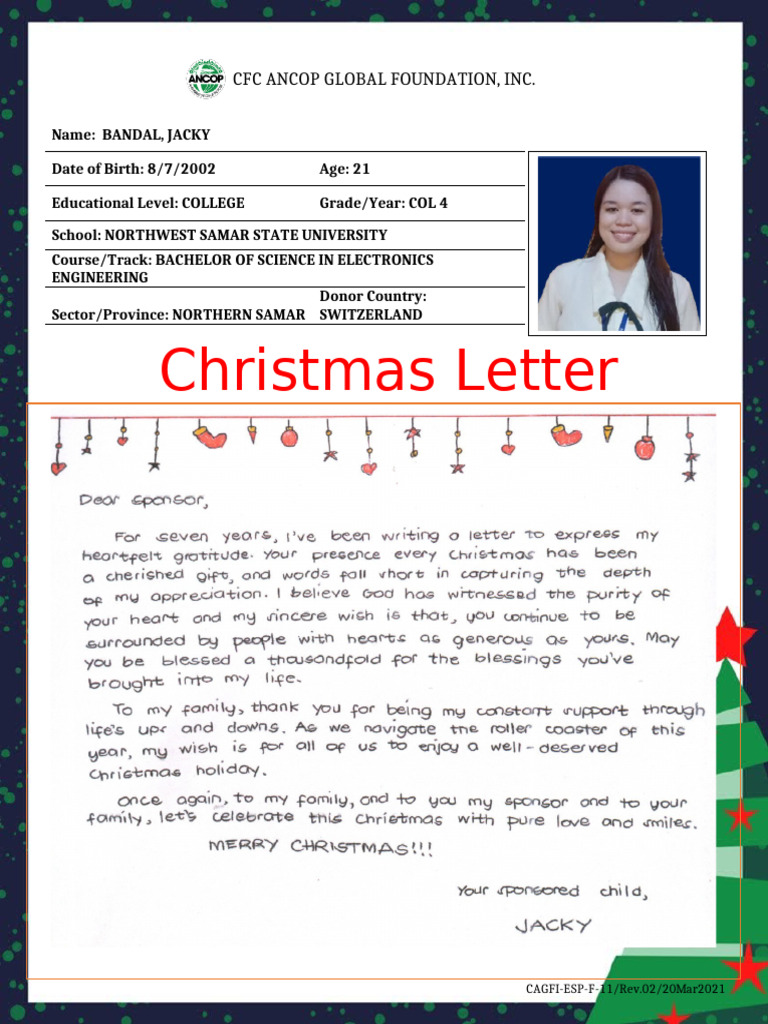 ANCOP
CFC ANCOP GLOBAL FOUNDATION, INC.
Name: BANDAL, JACKY
Date of Birth: 8/7/2002 Age: 21
Educational Level: COLLEGE Grade/Year: COL 4
School: NORTHWEST SAMAR STATE UNIVERSITY
Course/Track: BACHELOR OF SCIENCE IN ELECTRONICS
ENGINEERING
Donor Country:
Sector/Province: NORTHERN SAMAR SWITZERLAND
Christmas Letter
Dear sponsor,
For seven years, I've been writing a letter to express my
heartfelt gratitude. Your presence every Christmas has been
a cherished gift, and words fall short in capturing the depth
of my appreciation. I believe God has witnessed the purity of
your heart and my sincere wish is that, you continue to be
surrounded by people with hearts as generous as yours. May
you be blessed a thousandfold for the blessings you've
brought into my life.
To my family, thank you for being my constant support through
life's ups and downs. As we navigate the roller coaster of this
year, my wish is for all of us to enjoy a well-deserved
Christmas holiday.
Once again, to my family, and to you my sponsor and to your
family, let's celebrate this Christmas with pure love and smiles.
MERRY CHRISTMAS!!!
Your sponsored child,
JACKY
CAGFI-ESP-F-11/Rev.02/20Mar2021